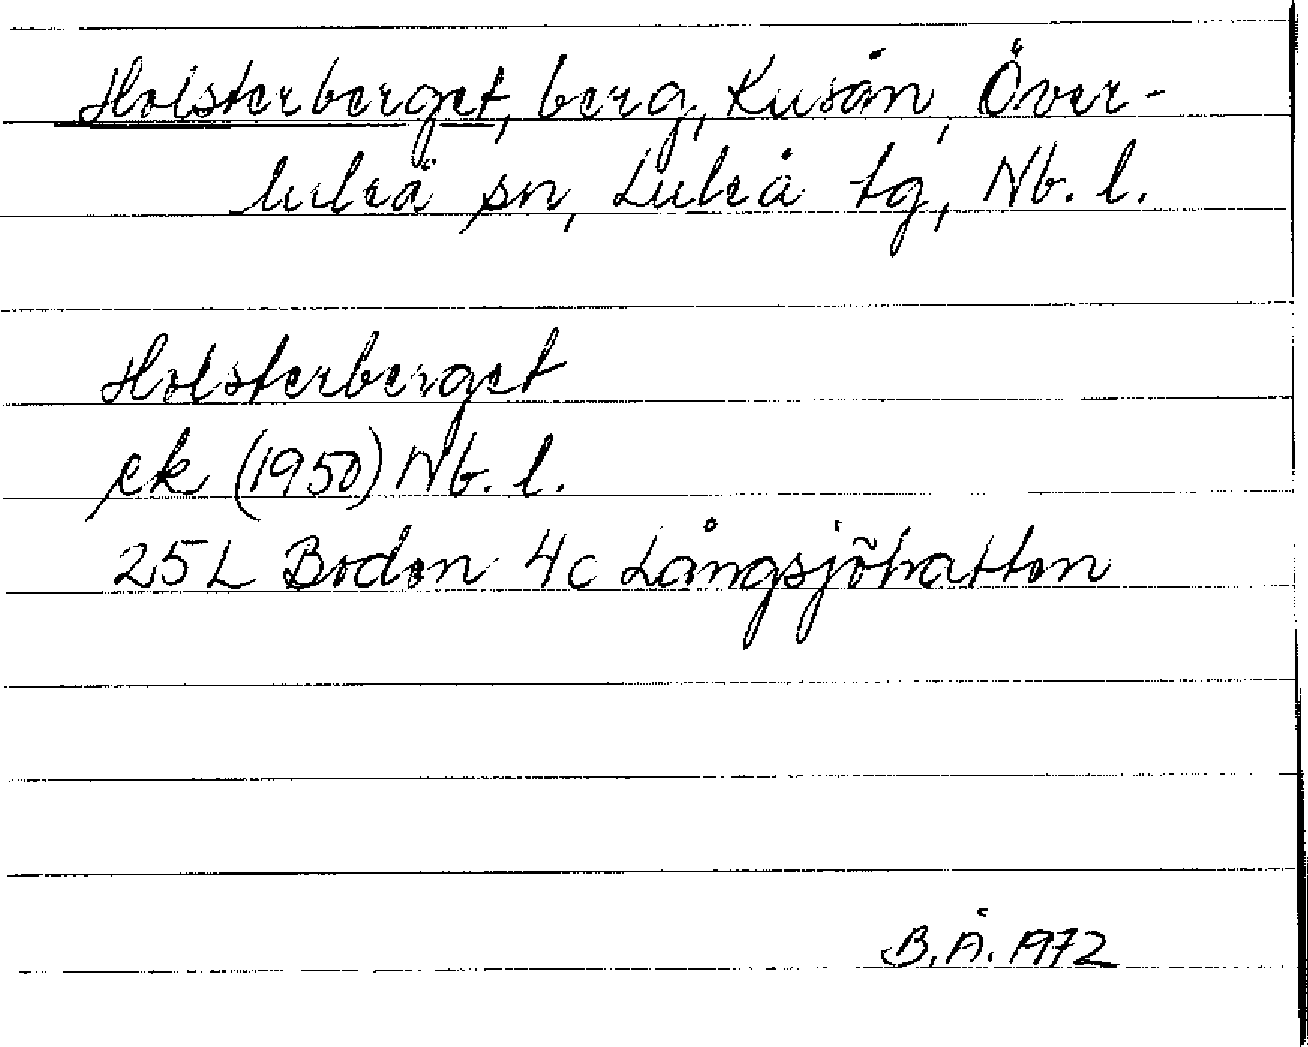 Holsterberget, berg, Kusån, Över-
luleå sn, Luleå tg, Nb. l.
Holsterberget
ek (1950) Nb. l.
25 L Boden 4c Långsjöhatten
B.Å. 1972